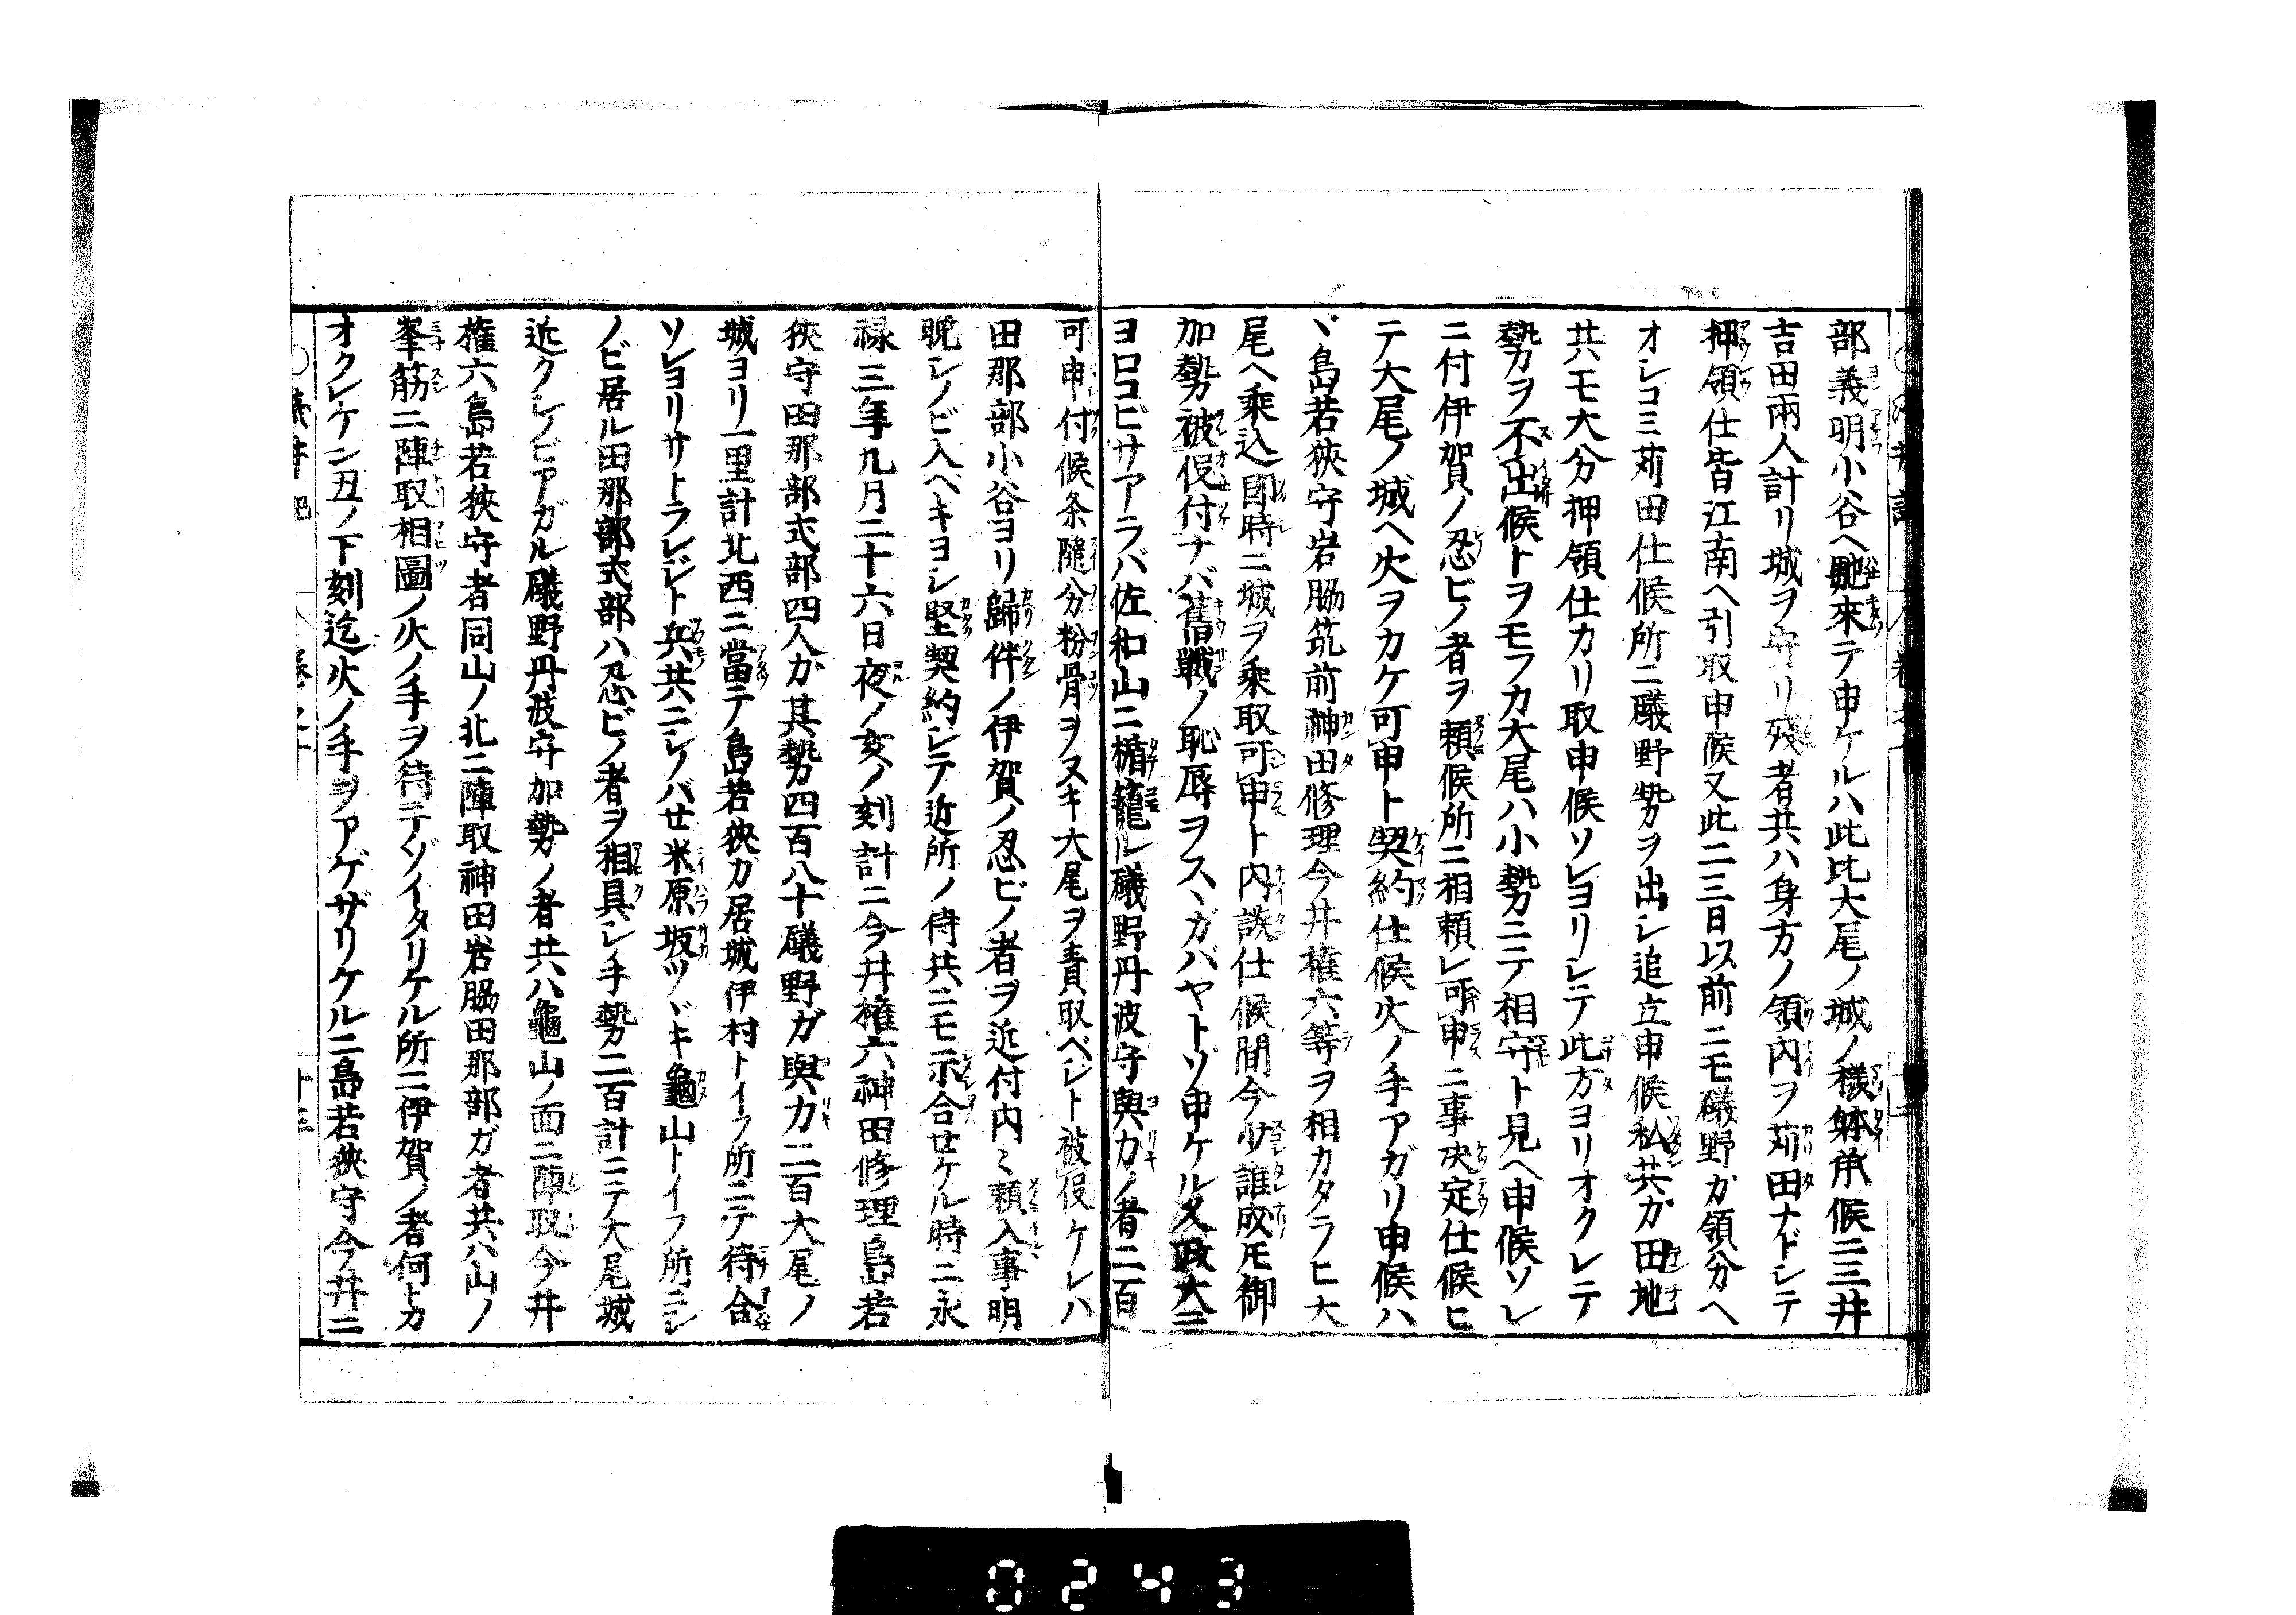 部義明小谷ヘ馳來テ申ケルハ此比大尾ノ城ノ樣躰承候ニ三井
吉田兩人計リ城ヲ守リ殘者共ハ身方ノ領内ヲ苅田ナドシテ
押領仕皆江南ヘ引取申候又此二三日以前ニモ礒野カ領分ヘ
オシコミ苅田仕候所ニ礒野勢ヲ出シ追立申候私共カ田地
共モ大分押領仕カリ取申候ソレヨリシテ此方ヨリオクレテ
勢ヲ不出候トヲモフカ大尾ハ小勢ニテ相守ト見ヘ申候ソレ
ニ付伊賀ノ忍ビノ者ヲ頼候所ニ相頼レ可申ニ事决定仕候ヒ
テ大尾ノ城ヘ火ヲカケ可申ト契約仕候火ノ手アガリ申候ハ
ヾ島若狹守岩脇筑前神田修理今井權六等ヲ相カタラヒ大
尾ヘ乘込即時ニ城ヲ乘取可申ト内談仕候間今少誰成モ御
加勢被仰付ナバ舊戰ノ恥辱ヲスヽガバヤトゾ申ケル久政大ニ
ヨロコビサアラバ佐和山ニ楯籠ル礒野丹波守與力ノ者二百
可申付候条隨分粉骨ヲヌキ大尾ヲ責取ベシト被仰ケレハ
田那部小谷ヨリ歸件ノ伊賀ノ忍ビノ者ヲ近付内々頼入事明
晩シノビ入ベキヨシ堅契約シテ近所ノ侍共ニモ示合せケル時ニ永
禄三年九月二十六日夜ノ亥ノ刻計ニ今井權六神田修理島若
狹守田那部式部四人ガ其勢四百八十礒野ガ與力二百大尾ノ
城ヨリ一里計北西ニ當テ島若狹ガ居城伊村トイフ所ニテ待合
ソレヨリサトラレジト兵共ニシノバせ米原坂ツヾキ龜山トイフ所ニシ
ノビ居ル田那部式部ハ忍ビノ者ヲ相具シ手勢二百計ニテ大尾城
近クシノビアガル礒野丹波守加勢ノ者共ハ龜山ノ面ニ陣取今井
權六島若狹守者同山ノ北ニ陣取神田岩脇田那部ガ者共ハ山ノ
峯筋ニ陣取相圖ノ火ノ手ヲ待テゾイタリケル所ニ伊賀ノ者何トカ
オクレケン丑ノ下刻迄火ノ手ヲアゲザリケルニ島若狹守今井ニ
0243